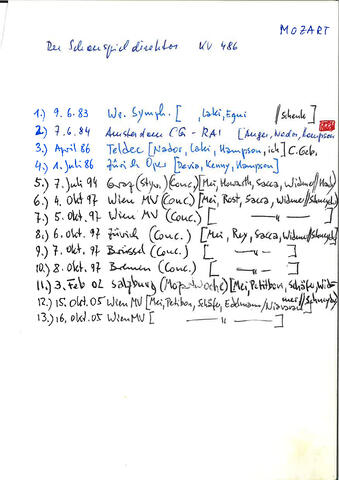 MOZART
Der Schauspieldirektor KV 486
1.) 9. 6. 83 Wr. Symph. [ , Laki, Equi //Schenk]
2.) 7. 6. 84 Amsterdam CG - RAI [Auger, Nador, Hampson
3.) April 86 Teldec [Nador, Laki, Hampson, ich] C. Geb.
4.) 1. Juli 86 Zürich Oper [Devia, Kenny, Hampson]
5.) 7. Juli 94 Graz (Styr.) (Conc.) [Mei, Howarth, Sacca, Widmer//
6.) 4. Okt. 97 Wien MV (Conc.) [Mei, Rost, Sacca, Widmer/
7.) 5. Okt. 97 Wien MV (Conc.) [ — " — ]
8.) 6. Okt. 97 Zürich (Conc.) [Mei, Rey, Sacca, Widmer/
9.) 7. Okt. 97 Brüssel (Conc.) [ — " — ]
10.) 8. Okt. 97 Bremen (Conc.) [ — " — ]
11.) 3. Feb 02 Salzburg (Mozartwoche) [Mei, Petibon, Schäfer, Wid-
mer//
12.) 15. Okt. 05 Wien MV [Mei, Petibon, Schäfer, Edelmann/Niavarani]
13.) 16. Okt. 05 Wien MV [ — " — ]